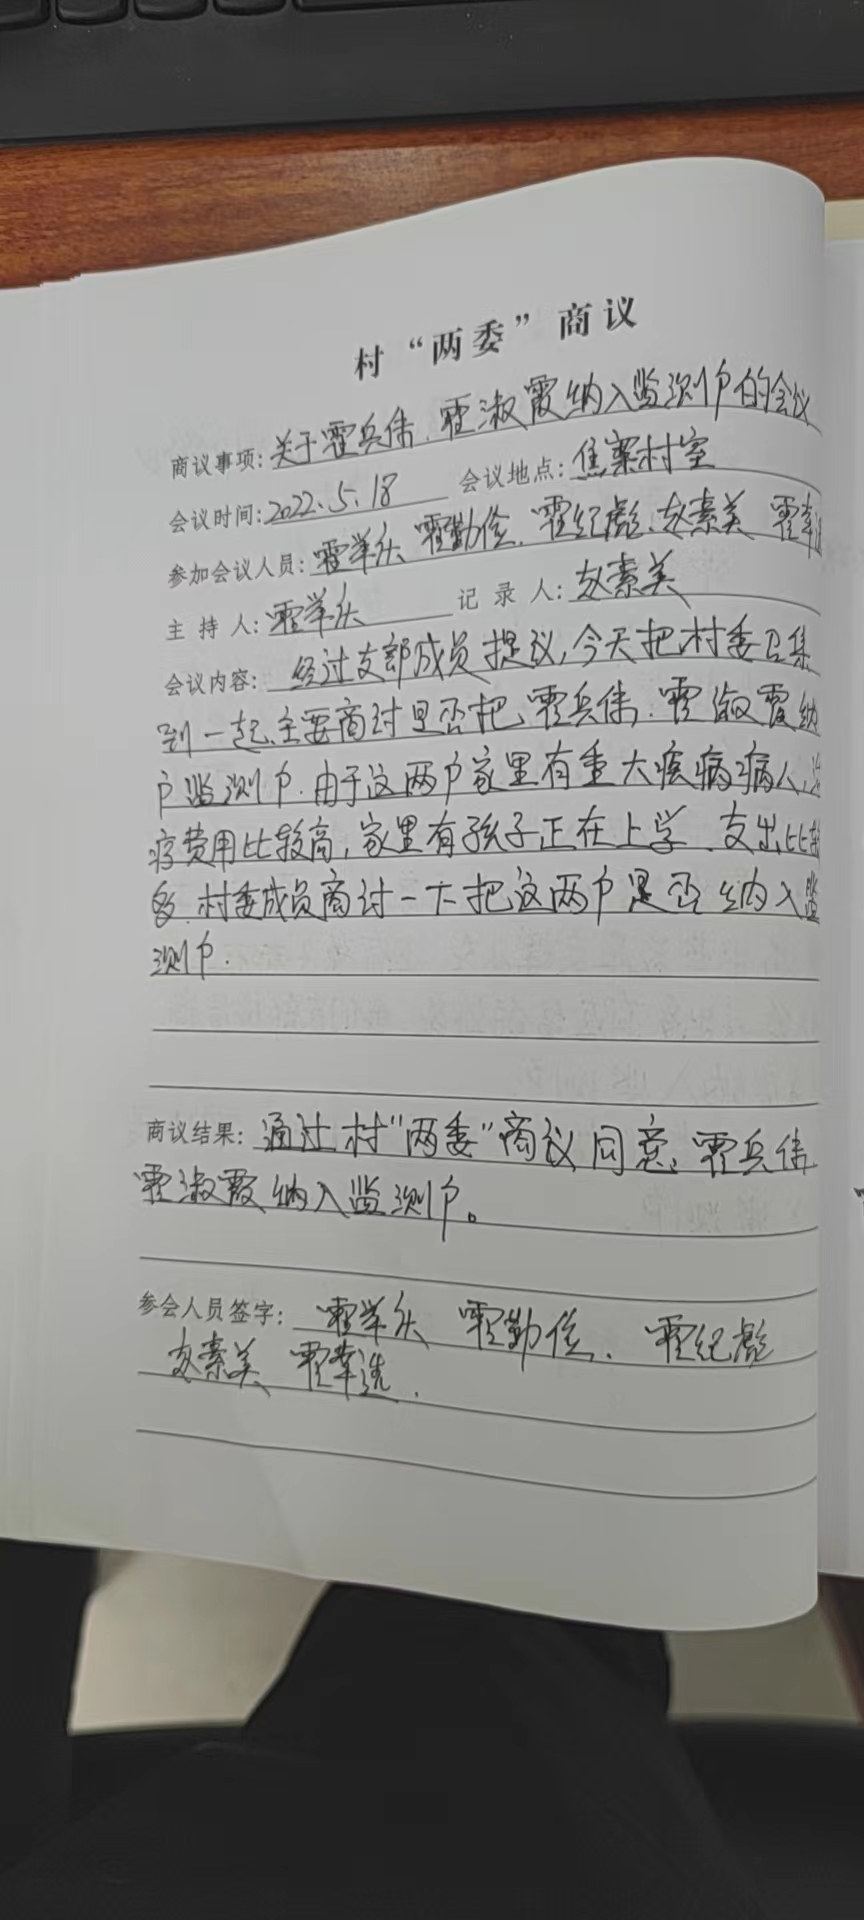 村“两委”商议
商议事项：关于霍兵伟、霍淑霞纳入监测户的会议
会议时间：2022.5.18 会议地点：焦寨村室
参加会议人员：霍举头 霍勤俭、霍纪彪、赵素美 霍幸
主持人：霍举头 记录人：赵素美
会议内容：经过支部成员提议,今天把村委召集
到一起、主要商讨是否把、霍兵伟、霍淑霞纳
户监测户.由于这两户家里有重大疾病病人、治
疗费用比较高,家里有孩子正在上学、支出比较
多.村委成员商讨一下把这两户是否纳入监
测户.
商议结果：通过村“两委”商议同意、霍兵伟
霍淑霞纳入监测户。
参会人员签字：霍举头 霍勤俭、霍纪彪
赵素美 霍幸选.